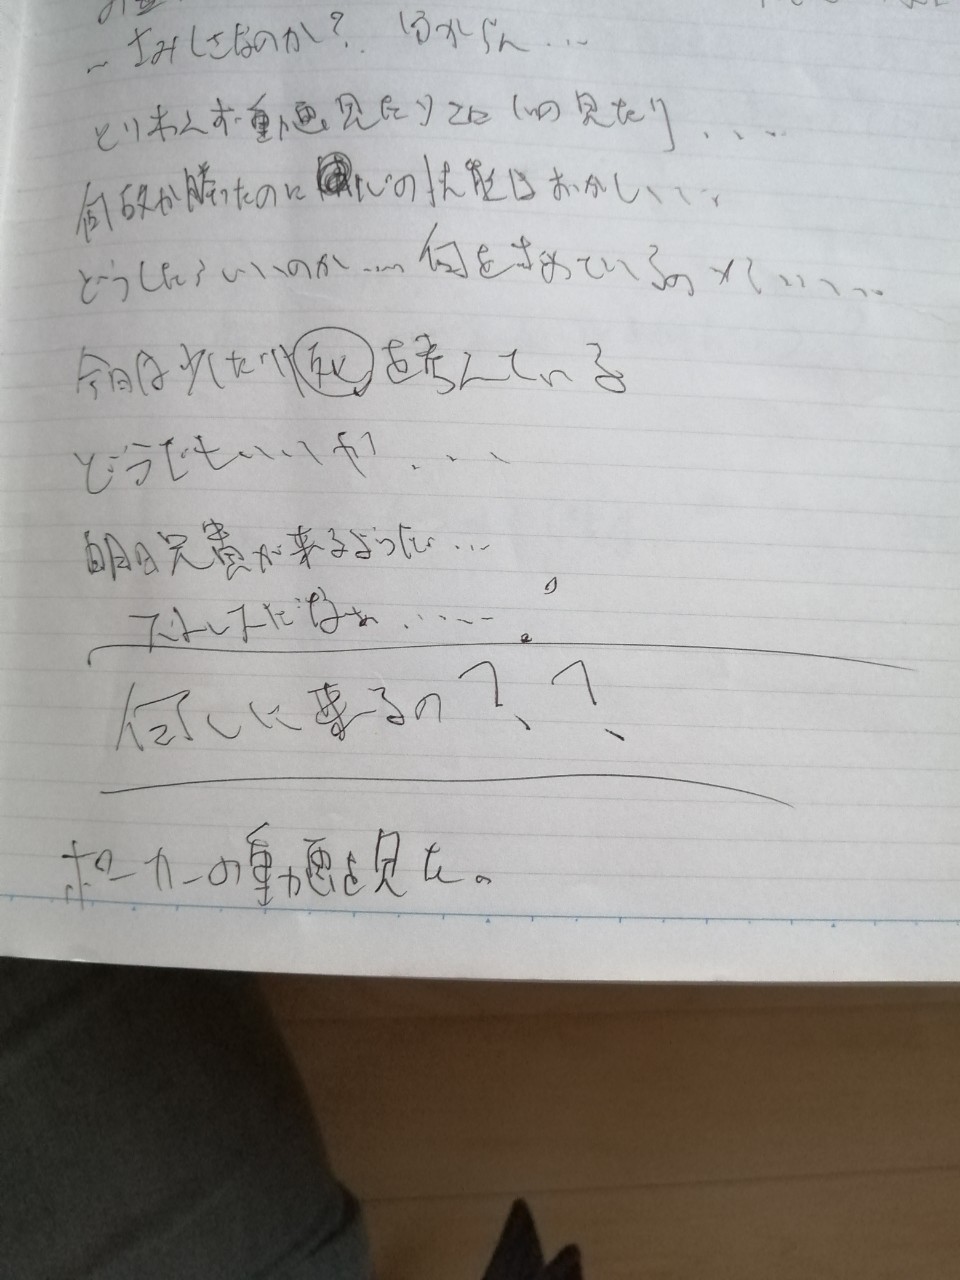 … さみしさなのか？ 分からん…
とりあえず動画見たり 見たり ....
何故か勝ったのに 心の状態はおかしい、、、
どうしたらいいのか…. 何を求めているの 、、、、..
今日は 少しだけ 死 を考えている
どうでもいいや ....
明日兄貴が来るようだ…
ストレスだなぁ ......
何しに来るの？？
ポーカーの動画を見た。